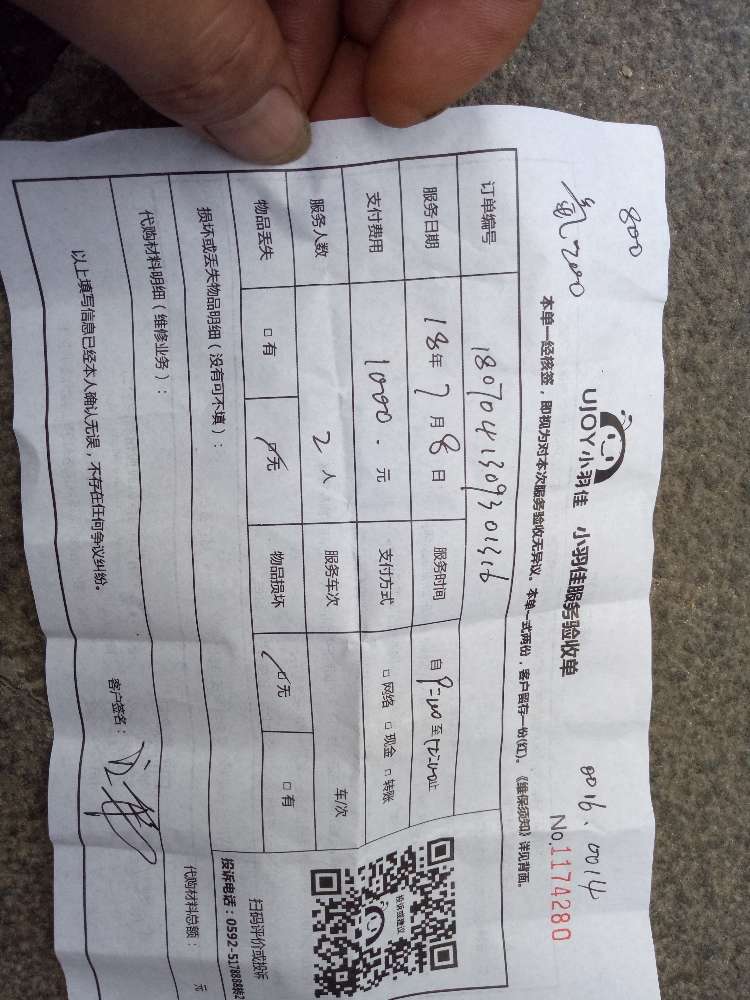 800
氟200
0016.0014
UJOY小羽佳 小羽佳服务验收单
No.1174280
本单一经核签，即视为对本次服务验收无异议。本单一式两份，客户留存一份(红)。《维保须知》详见背面。
订单编号 1807041309301316
服务日期 18年7月8日 服务时间 自9:00至12:00止
支付费用 1000.元 支付方式 □网络 □现金 □转账
服务人数 2人 服务车次 车/次
物品丢失 □有 □无 物品损坏 □无 □有
损坏或丢失物品明细（没有可不填）：
投诉或建议
扫码评价或投诉
投诉电话：0592-5178888转2
代购材料明细（维修业务）：
代购材料总额： 元
以上填写信息已经本人确认无误，不存在任何争议纠纷。
客户签名：